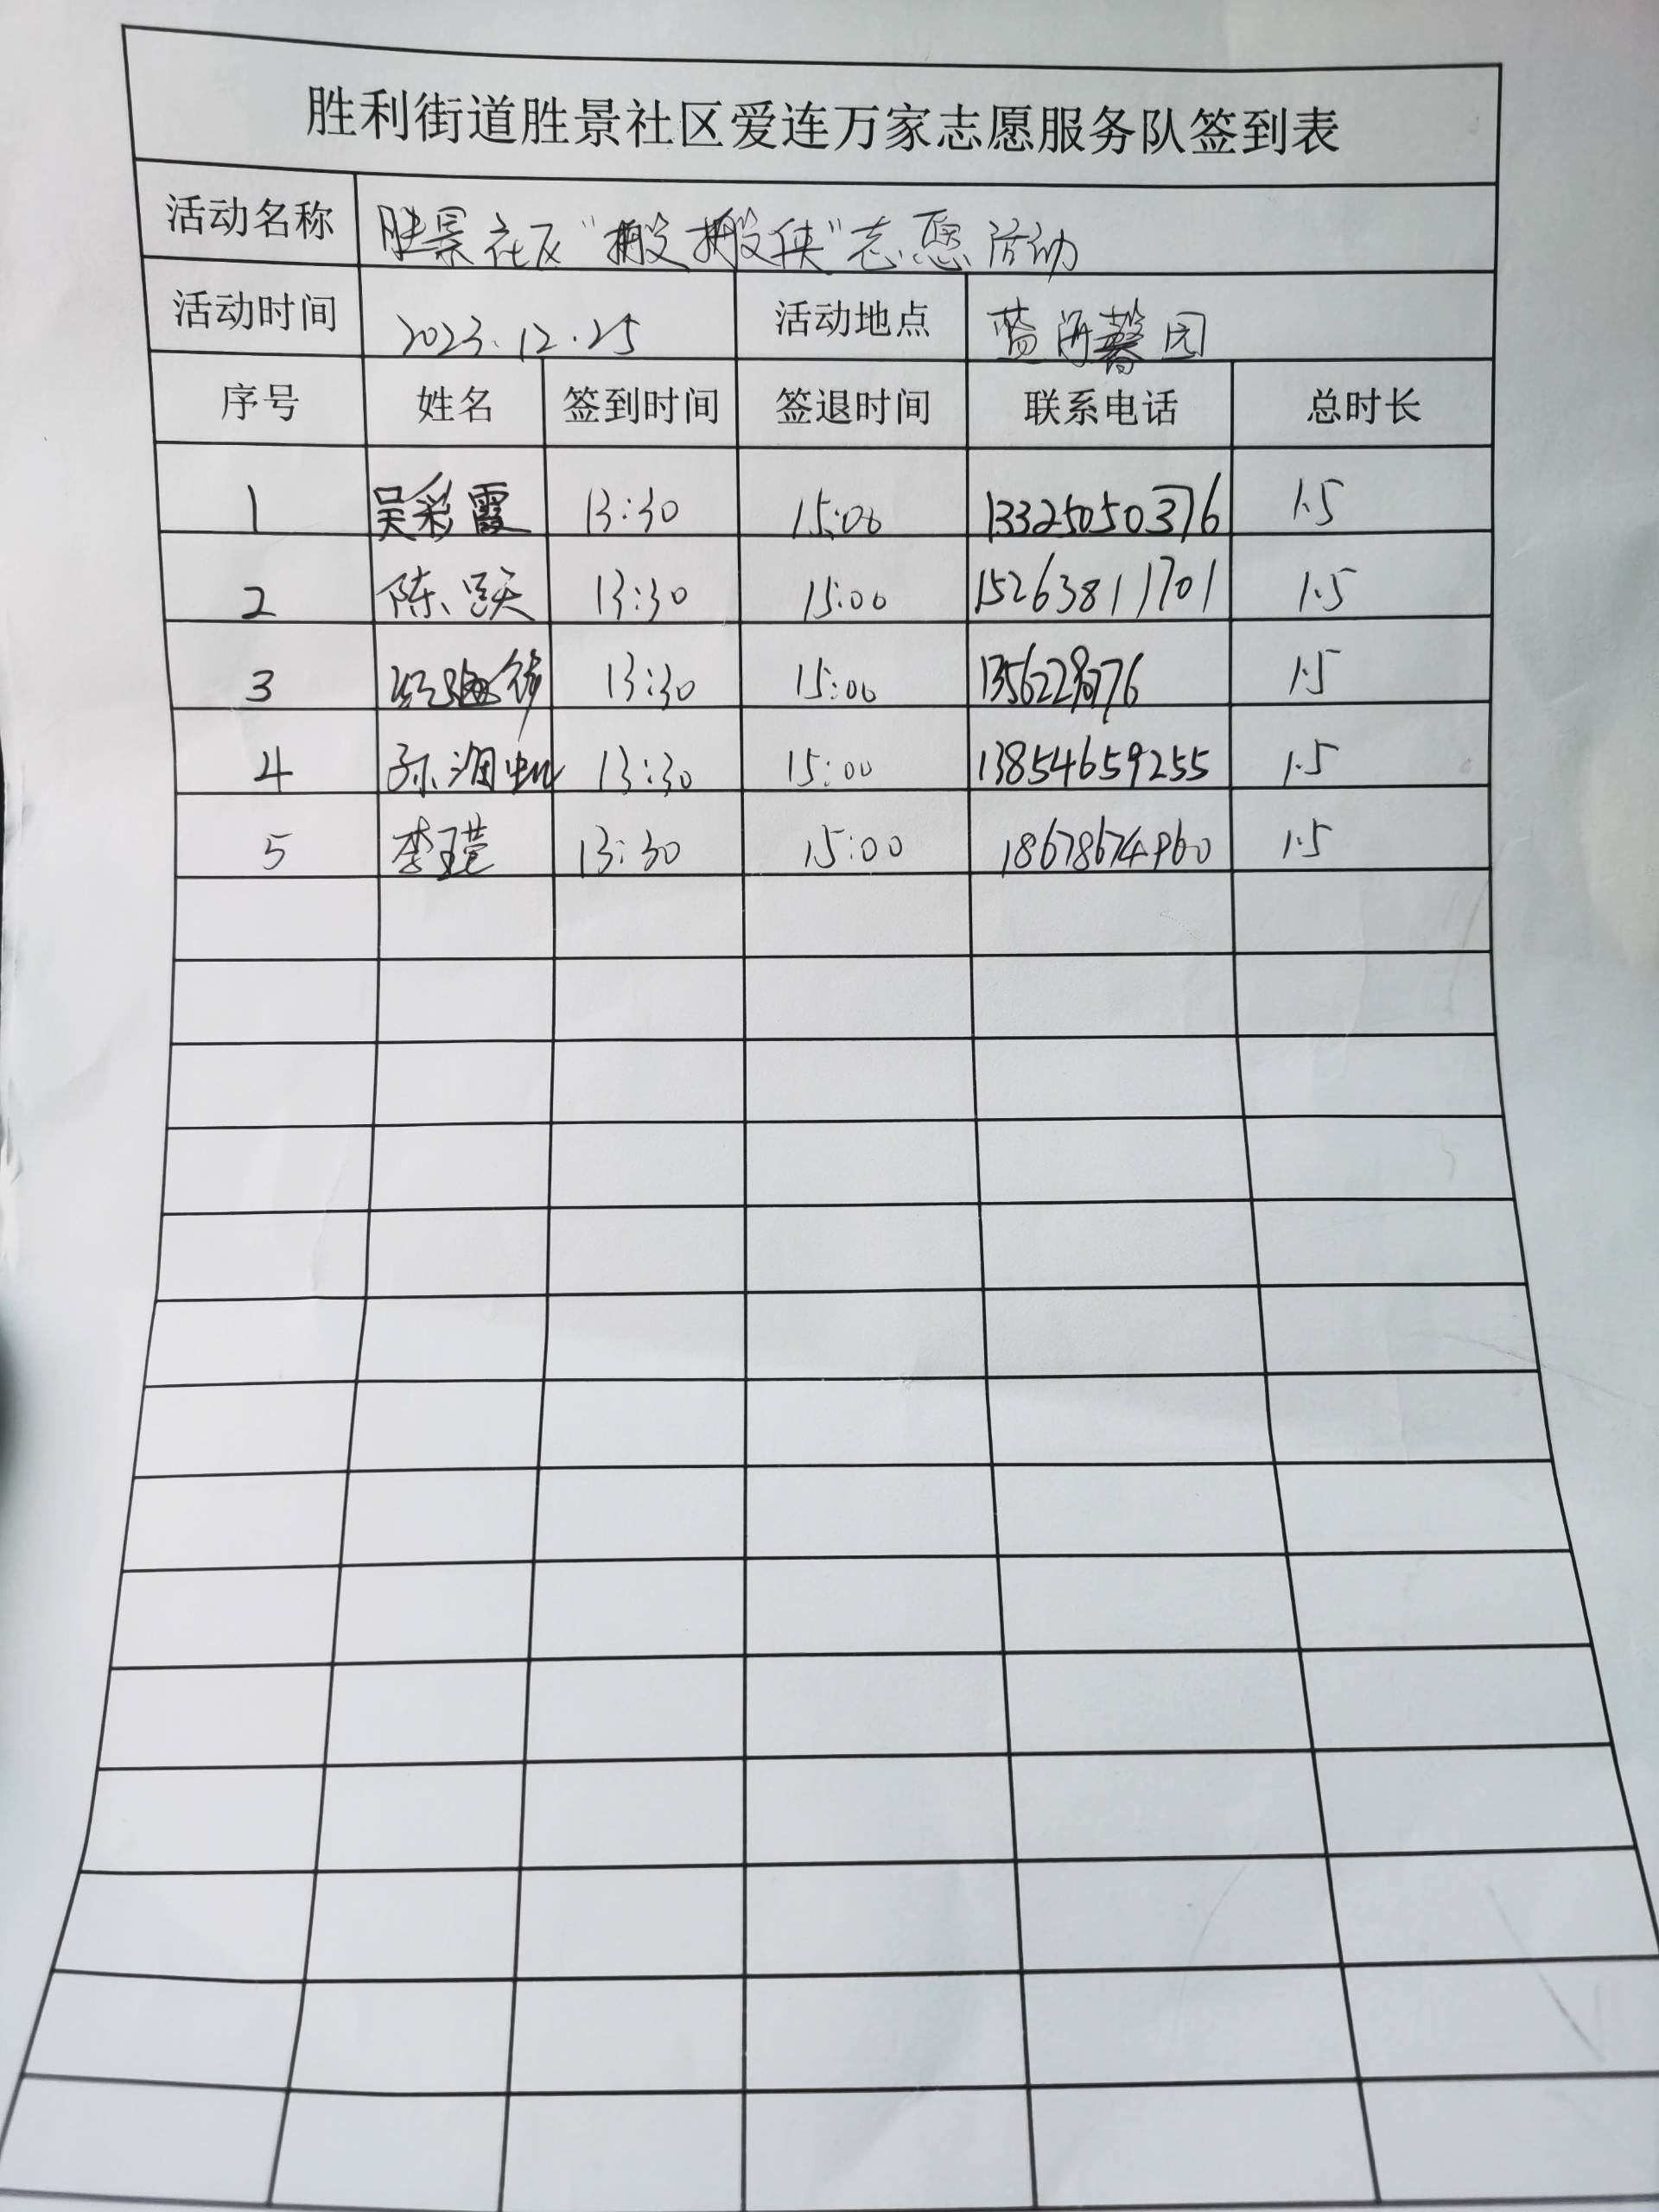 胜利街道胜景社区爱连万家志愿服务队签到表
活动名称 胜景社区“搬搬侠”志愿活动
活动时间 2023.12.25 活动地点 蓝海馨园
序号 姓名 签到时间 签退时间 联系电话 总时长
1 吴彩霞 13:30 15:00 13325050376 1.5
2 陈 13:30 15:00 15263811701 1.5
3 13:30 15:00 1.5
4 孙 13:30 15:00 13854659255 1.5
5 李莹 13:30 15:00 18678674960 1.5